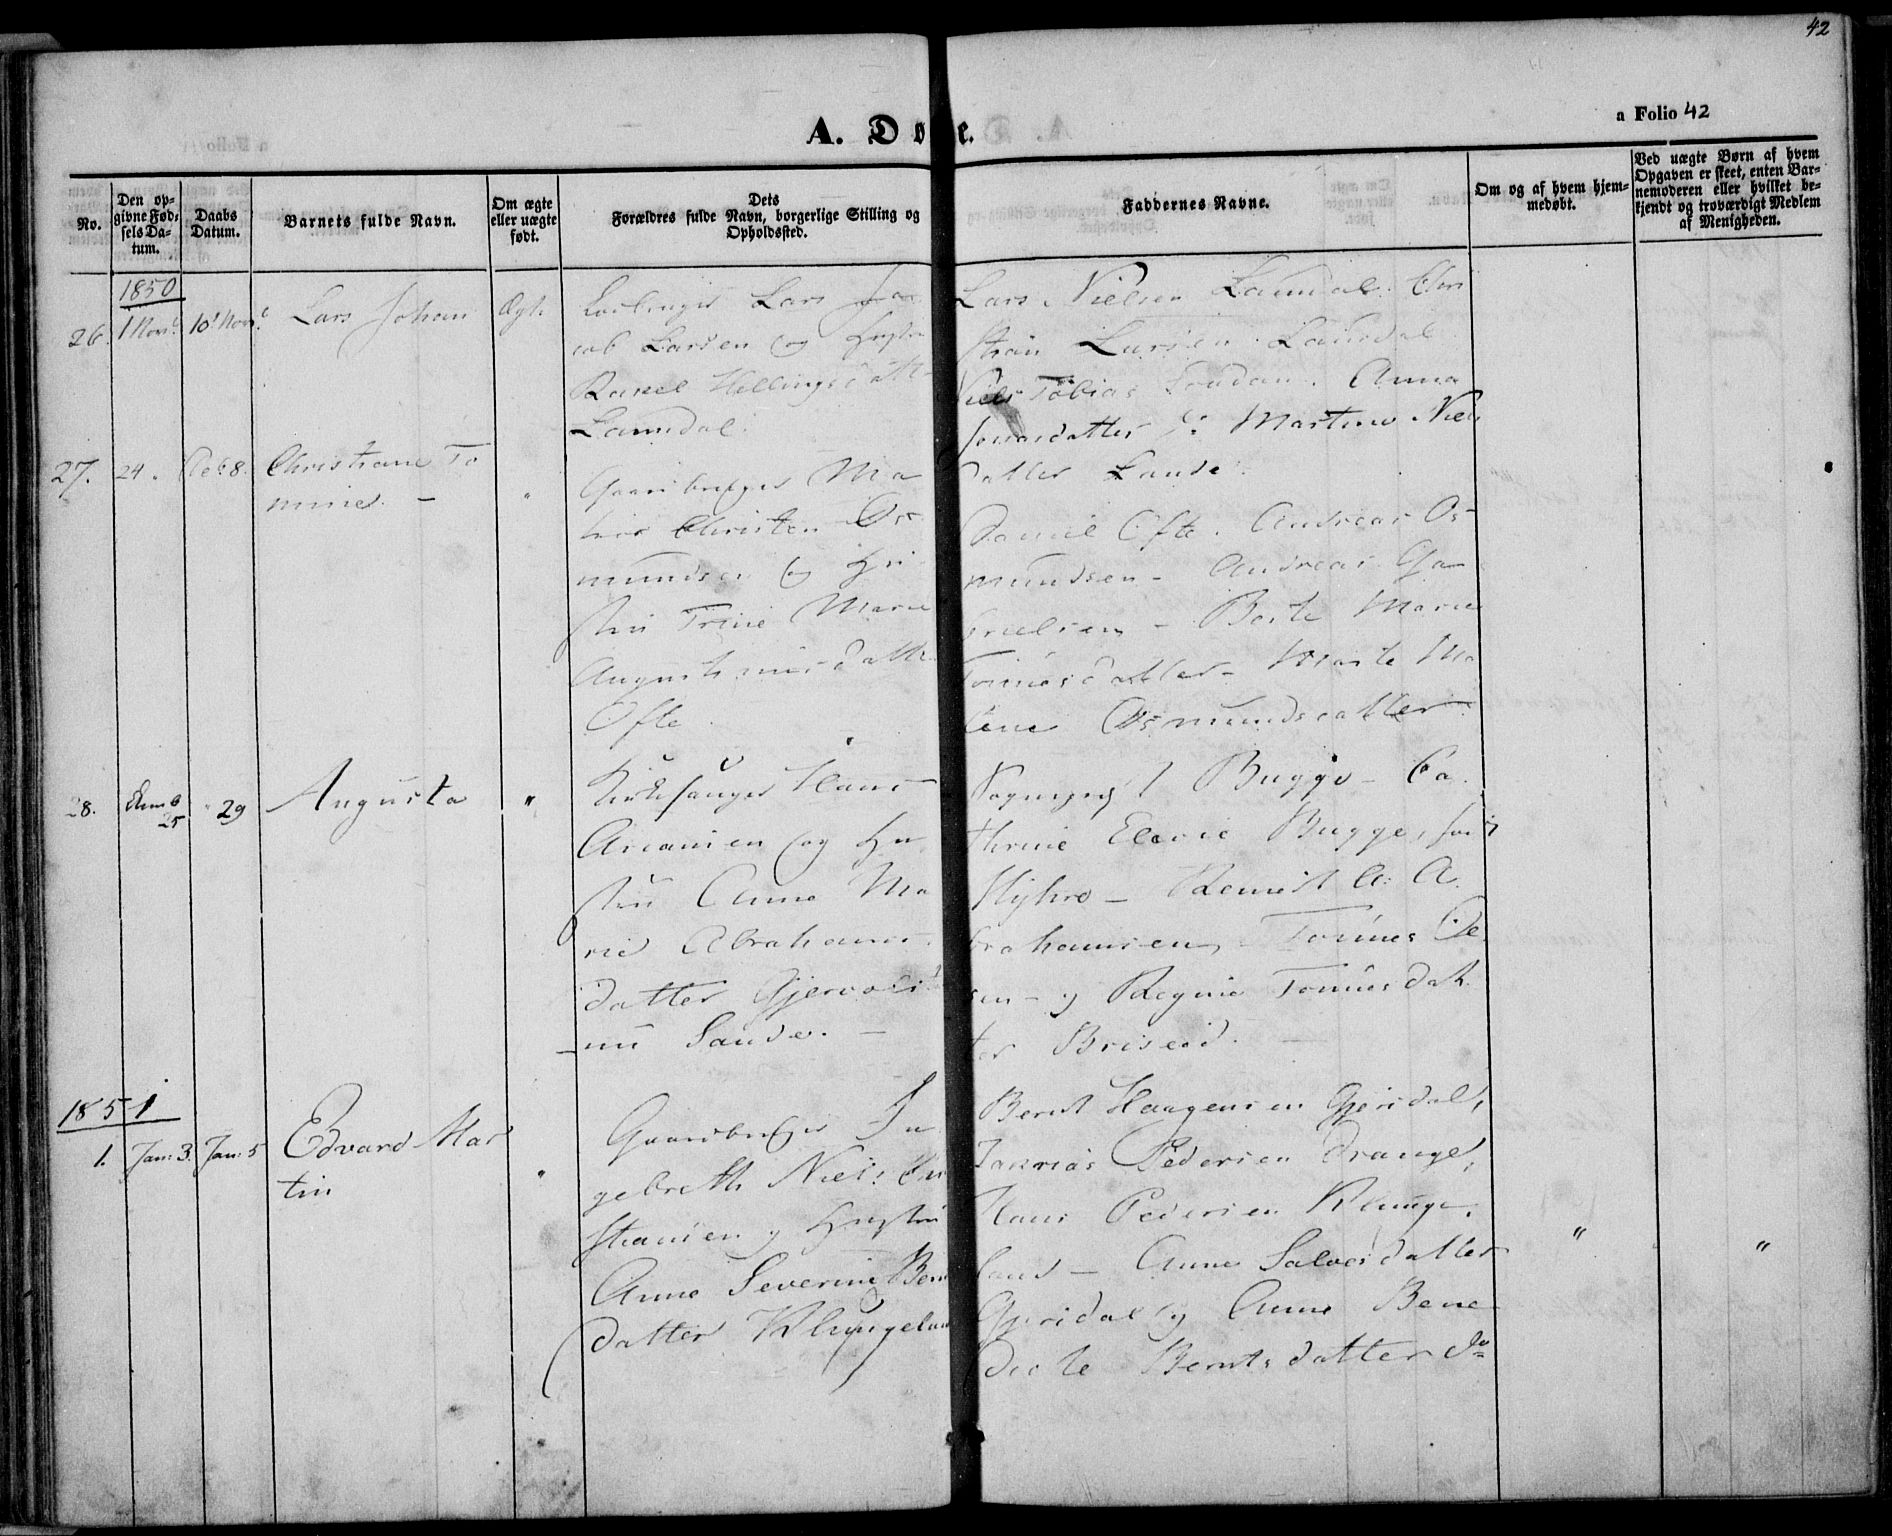 42
a Folio 42
A. Døbe.
No.
Den op-
givne Fød-
sels Da-
tum.
Daabs
Datum.
Barnets fulde Navn.
Om ægte
eller uægte
født.
Dets
Forældres fulde Navn, borgerlige Stilling og
Opholdssted.
Faddernes Navne.
Om og af hvem hjem-
medøbt.
Ved uægte Børn af hvem
Opgaven er skeet, enten Bar-
nemoderen eller hvilket be-
kjendt og troværdigt Medlem
af Menigheden.
1850
26. 1 Novb. 10 Novb.
Lars Johan
Ægte
Lars Ja
cob Larsen og Hustru
Rakel Hellingsdatter
Laundal.
Lars Nielsen Laundal. Chri
stian Larsen Laundal
Niels Tobias . Anna
Jonasdatter Martine Niels
datter Lande.
27. 24. Decb 8.
Christiane To
mine. -
"
Gaardbruger Ma
this Christen Os
mundsen og Hu
stru Trine Marie
Augustinusdatter
Ofte.
Daniel Ofte. Andreas Os
mundsen - Andreas Ga
brielsen - Berte Marie
Tønnesdatter - Marte Ma
lene Osmundsdatter
28. 25 " 29
Augusta
"
Kirkesanger Hans
Arianisen og Hu
stru Anne Ma
rie Abrahams
datter
Sande. -
Bugge - Ca
thrine Elevie Bugge,
- C. A.
brahamsen, Tønnes Ole
sen - og Regine Tønnesdat
ter Briseid. -
1851
1. Jan: 3. Jan: 5
Edvard Mar
tin
"
Gaardbruger In
gebreth Niels Chri
stiansen og Hustru
Anne Severine Bernt
datter Klungeland
Bernt Haagensen Gjerdal,
Zakrias Pedersen Drange,
Hans Pedersen Klunge
land - Anne Salvesdatter
Gjerdal og Anne Bene
dicte Berntsdatter do
"
"